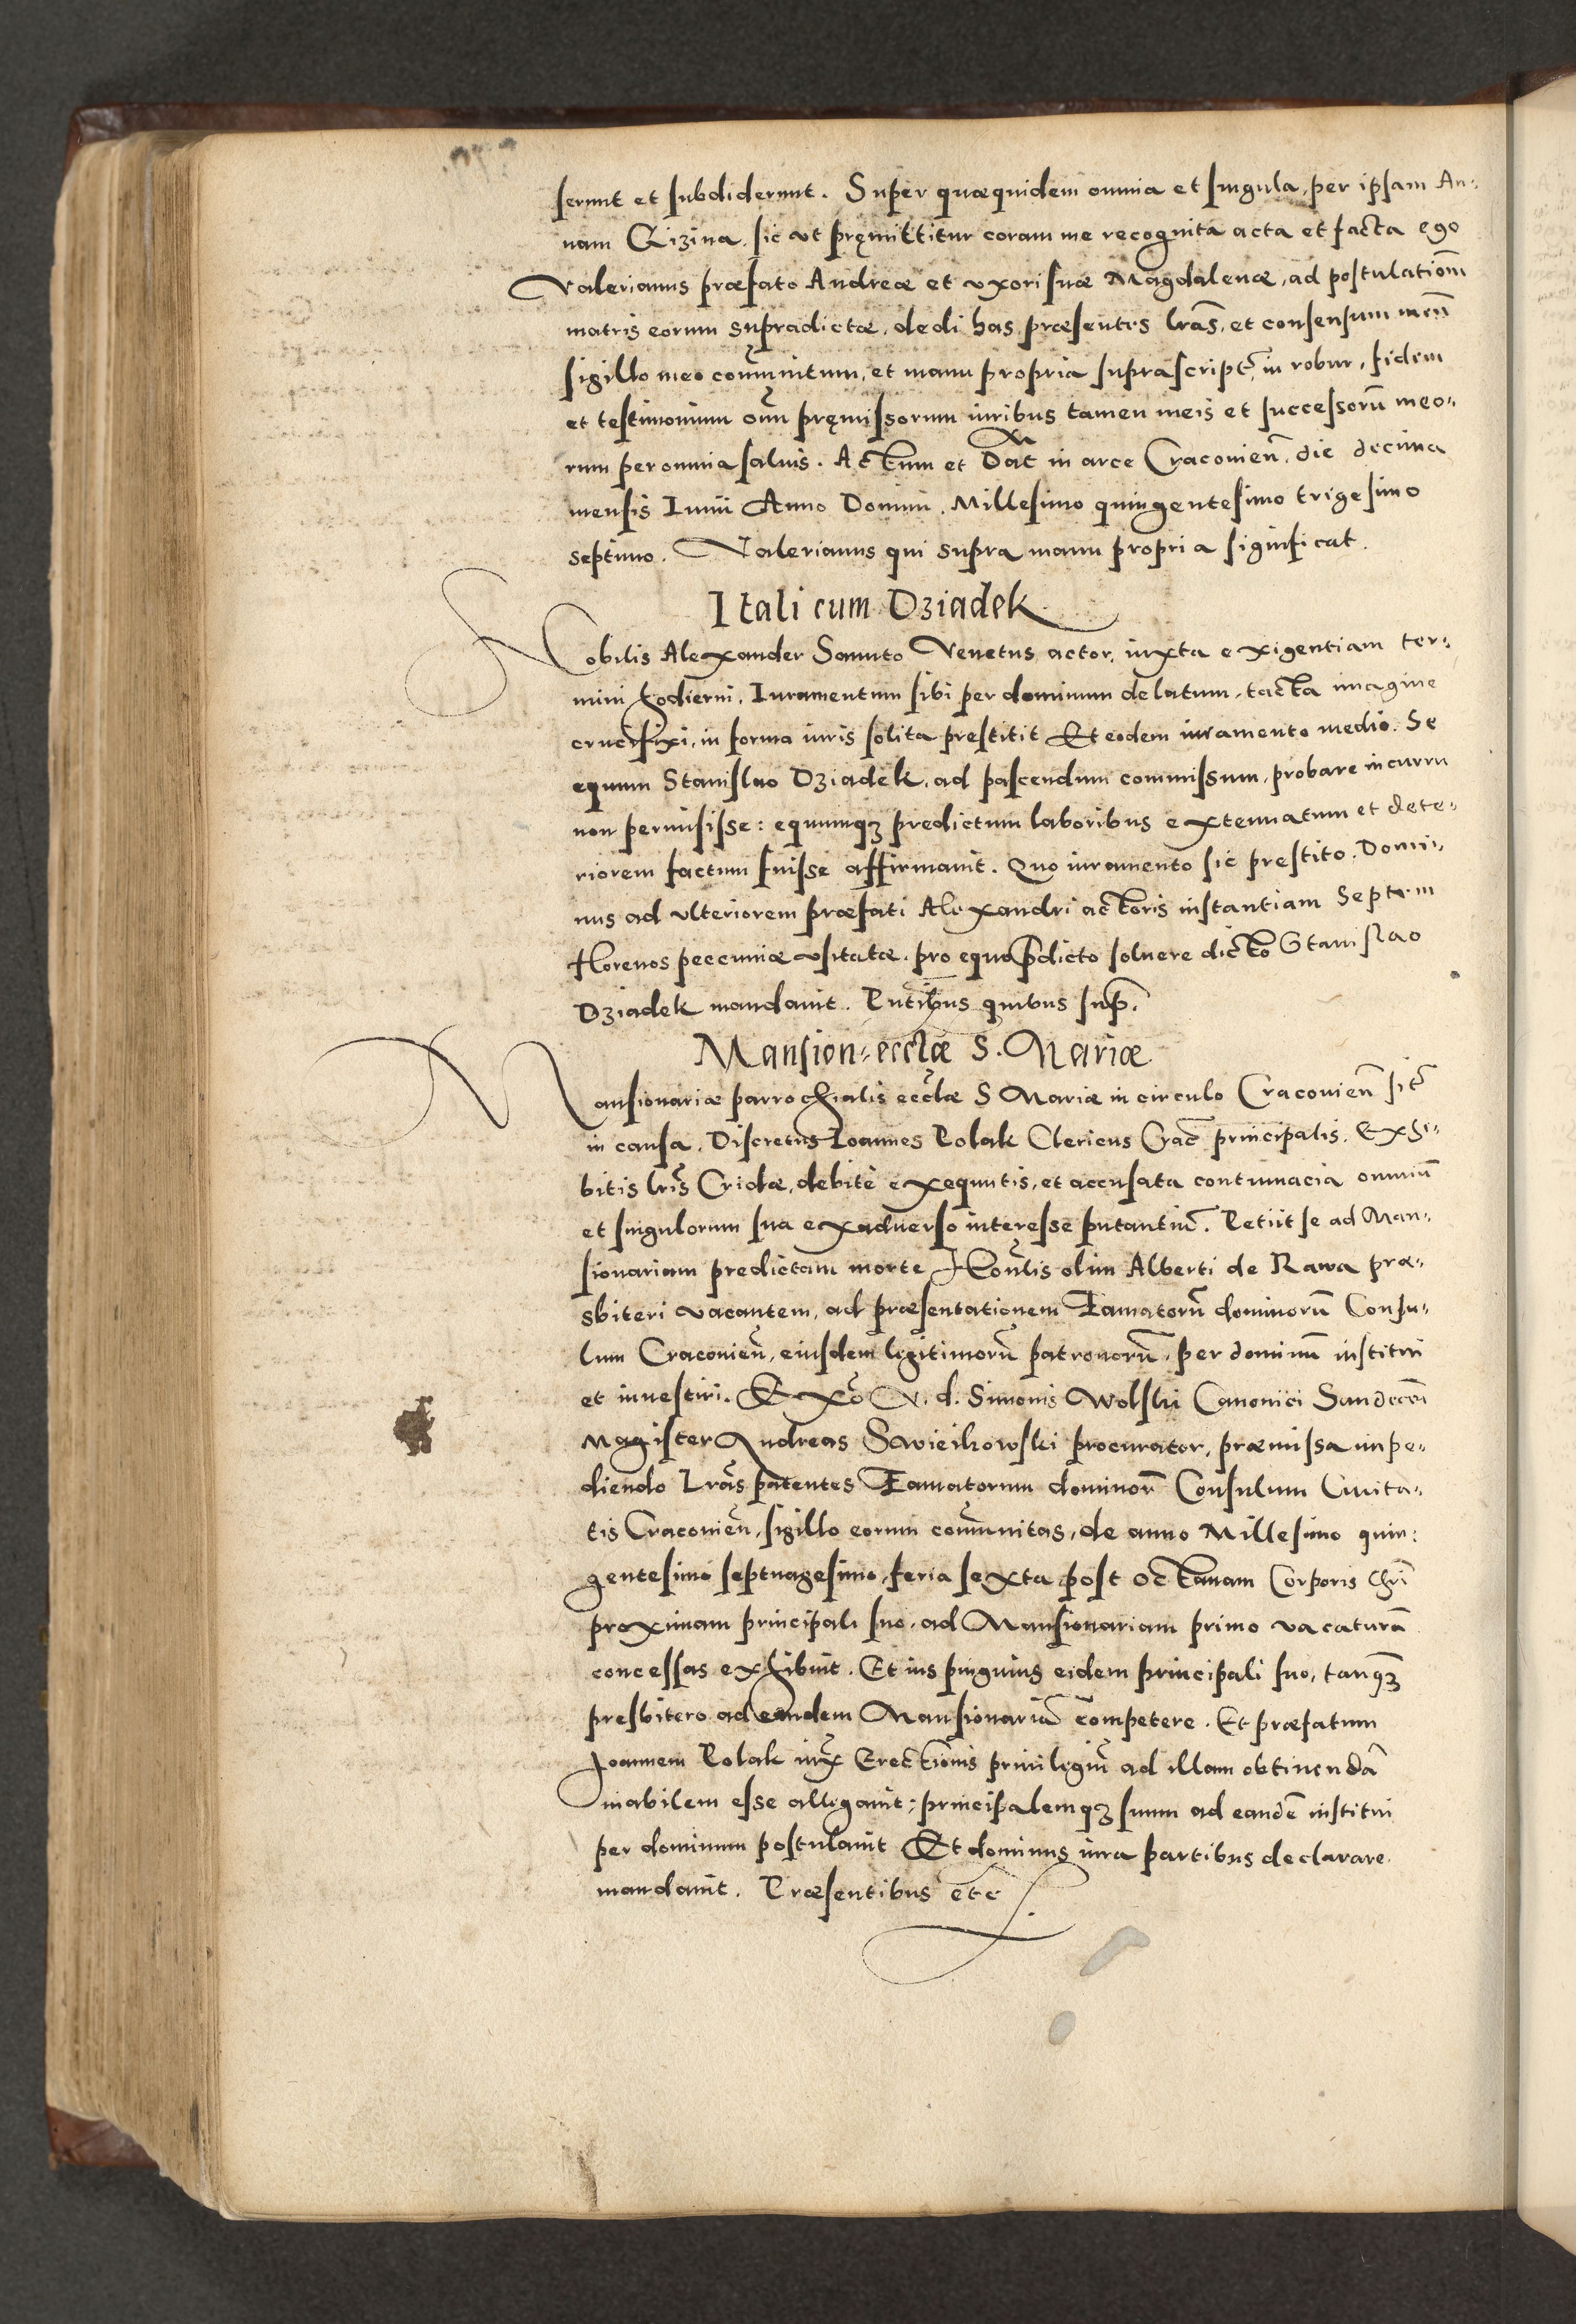 serunt et subdiderunt. Super quæquidem omnia et singula, per ipsam An-
nam Gizina, sic ut pręmittitur coram me recognita acta et facta ego
Valerianus præfato Andreæ et uxori suæ Magdalenæ, ad postulationē
matris eorum supradictæ, dedi has præsentes lrās, et consensum meū
sigillo meo com̄unitum, et manu propria suprascript̄, in robur, fidem
et testimonium om̄ pręmissorum iuribus tamen meis et successorū meo-
rum per omnia saluis. Actum et Dat̄ in arce Cracovień. die decima
mensis Iunii Anno Domini. Millesimo quingentesimo trigesimo
septimo. Valerianus qui supra manu propria significat.
Itali cum Dziadek.
Nobilis Alexander Sanuto Venetus actor, iuxta exigentiam ter-
mini hodierni, Iuramentum sibi per dominum delatum, tacta imagine
crucifixi, in forma iuris solita prestitit Et eodem iuramento medio. Se
equum Stanislao Dziadek, ad pascendum commissum, probare in curru
non permisisse: equumqȝ predictum laboribus extenuatum et dete-
riorem factum fuisse affirmauit. Quo iuramento sic prestito. Domi-
nus ad ulteriorem præfati Alexandri actoris instantiam Septem
Florenos peccuniæ usitatæ, pro equo p̄dicto soluere dicto Stanislao
Dziadek mandauit. Pn̄tibus quibus sup̄.
Mansion: eccl̄æ S. Mariæ
Mansionariæ parrochialis eccl̄æ S Mariæ in circulo Cracovień sit̄
in causa. Discretus Ioannes Polak Clericus Crac̄ principalis. Exhi-
bitis lrīs Cridæ, debitè exequutis, et accusata contumacia omniū
et singulorum sua ex aduerso interesse putantiū. Petiit se ad Man-
sionariam predictam morte Hon̄lis olim Alberti de Rawa præ-
sbiteri vacantem, ad præsentationem Famatorū dominorū Consu-
lum Cracovień, eiusdem legitimorū patronorū, per dominū institui
et inuestiri. Ex ō V. d. Simonis Wolski Canonici Sandecēn
Magister Andreas Swieikowski procurator, præmissa impe-
diendo Lrās patentes Famatorum dominorū Consulum Ciuita-
tis Cracovień, sigillo eorum com̄unitas, de anno Millesimo quin-
gentesimo septuagesimo, feria sexta post octauam Corporis Chrī
proximam principali suo, ad Mansionariam primo vacaturā
concessas exhibuit. Et ius pinguius eidem principali suo, tanqȝ
presbitero ad eandem Mansionariā competere. Et præfatum
Joannem Polak iux̄ Erectionis priuilegiū ad illam obtinendā
inabilem esse allegauit; principalemqȝ suum ad eandē institui
per dominum postulauit Et dominus iura partibus declarare
mandauit. Præsentibus etc